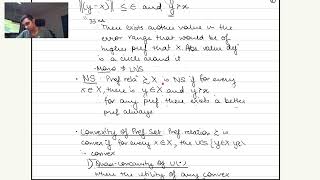 ||(y-x)|| ≤ ε and y>x
There exists another value in the
error range that would be of
higher pref that x. Abs value dif
is a circle around it
- Mono ⇒ LNS
• NS: Pref relaⁿ ≥ X is NS if for every
x∈X, there is y∈X and y>x
for any pref there exists a better
pref always
• Convexity of Pref Set: Pref relation ≥ is
convex if for every x∈X, the UCS {y∈X: y≥x}
is convex
1) Quasi-concavity of U(.)
where the utility of any convex